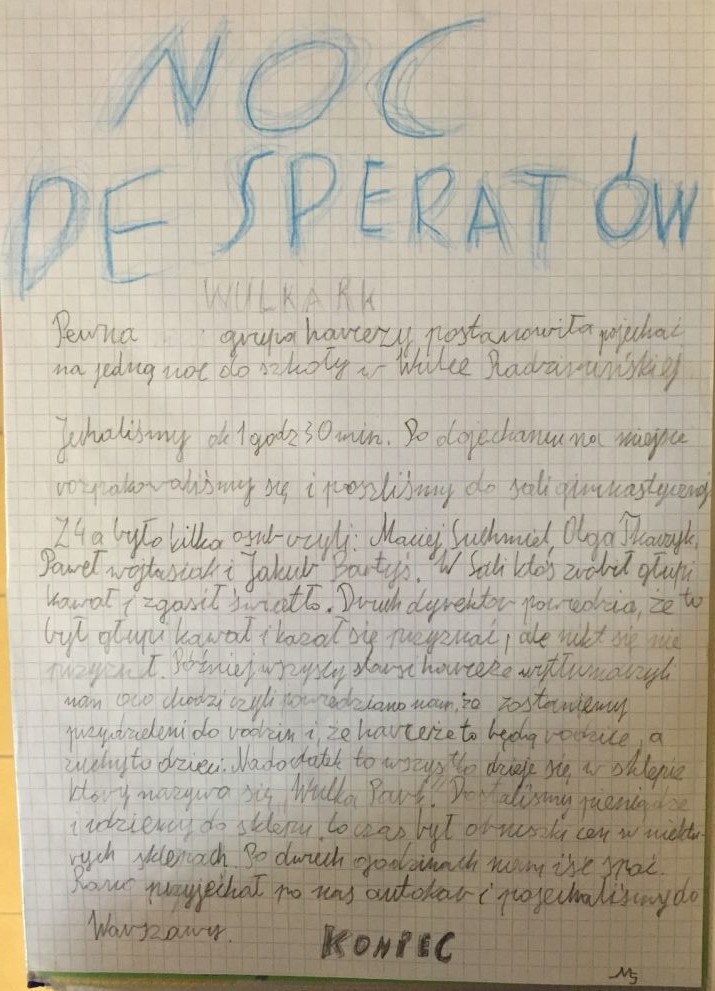 NOC
DESPERATÓW
WULKA RK
Pewna grupa harcezy postanowiła pojechać
na jedną noc do szkoły w Wulce Radzimińskiej
Jechaliśmy ok 1 godz 30 min. Po dojechaniu na miejsce
rozpakowaliśmy się i poszliśmy do sali gimnastycznej
Z 4a było kilka osub czyli: Maciej Suchmiel, Olga Tkaczyk,
Paweł wojtasiak i Jakub Bartyś. W Sali ktoś zrobił głupi
kawał i zgasił światło. Druch dyrektor powiedzia, że to
był głupi kawał i kazał się przyznać, ale nikt się nie
przyznał. Później wszyscy starsi harceże wytłumaczyli
nam oco chodzi czyli powiedziano nam, że zostaniemy
przydzieleni do rodzin i, że harceże to będą rodzice, a
zuchy to dzieci. Nadodatek to wszystko dzieje się w sklepie
ktory nazywa się Wulka Park. Dostaliśmy pieniądze
i idziemy do sklepu, co czas był obniszki cen w niektu-
rych sklepach. Po dwuch godzinach nam iść spać.
Rano przyjechał po nas autokar i pojechaliśmy do
Warszawy.
KONPEC
MS